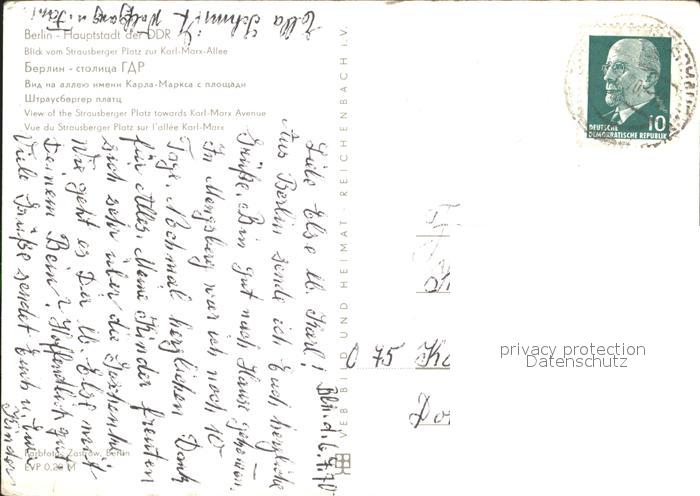 Berlin - Hauptstadt der DDR
Blick vom Strausberger Platz zur Karl-Marx-Allee
Берлин - столица ГДР
Вид на аллею имени Карла-Маркса с площади
Штраусбергер платц
View of the Strausberger Platz towards Karl-Marx Avenue
Vue du Strausberger Platz sur l'allée Karl-Marx
Bln. d. 6.7.70
Liebe Else lb. Karl!
Aus Berlin sende ich Euch herzliche
Grüße. Bin gut nach Hause gekommen.
In Mengsberg war ich noch 10
Tage. Nochmal herzlichen Dank
für Alles. Meine Kinder freuten
sich sehr über die Geschenke.
Wie geht es Dir lb. Else mit
Deinem Bein? Hoffentlich gut.
Viele Grüße sendet Euch u. Eure
Kinder
Ella Schmidt
Wolfgang u. Fani
VEB BILD UND HEIMAT REICHENBACH i.V.
Farbfoto: Zastrow, Berlin
EVP 0,20 M
DEUTSCHE
DEMOKRATISCHE REPUBLIK
10
75
privacy protection
Datenschutz